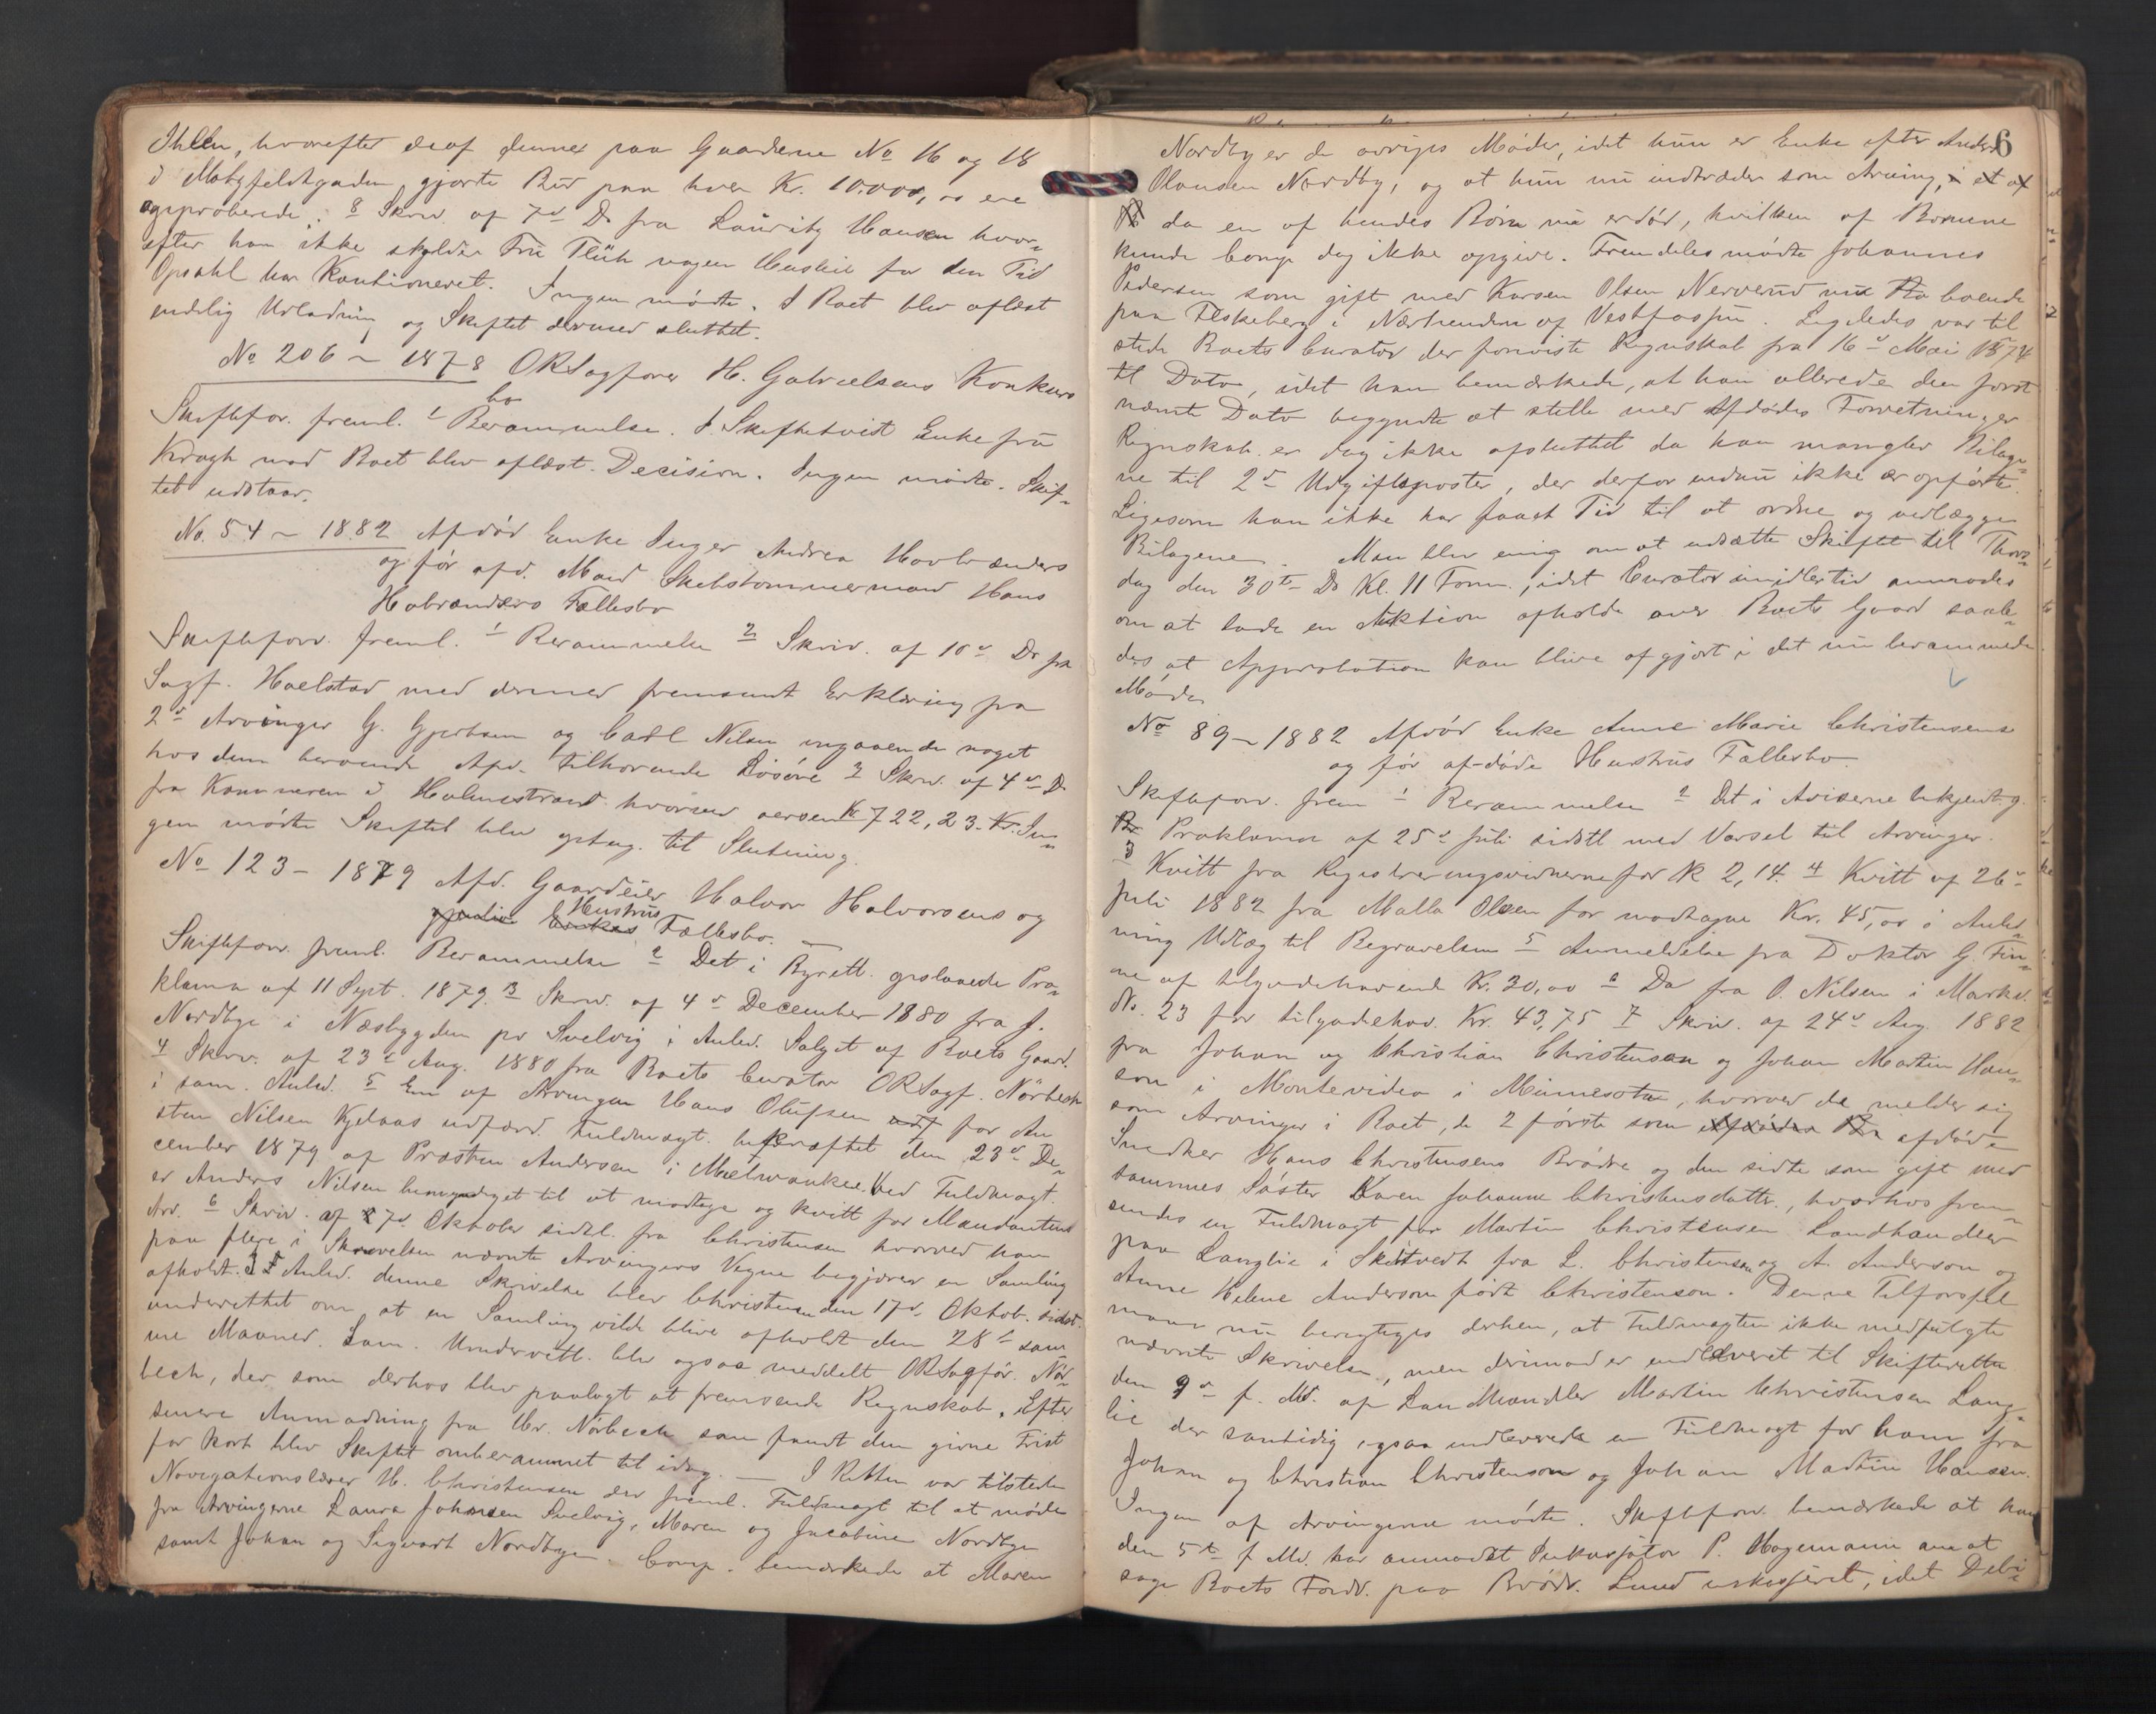 Ihlen, hvorefter deaf denne paa Gaardene No 16 og 18
i Motzfeldtgaden gjorte Bud paa hver Kr. 10.000, oo ere
approberede. 8 Skriv. af 7de Ds fra Lauritz Hansen hvor-
efter han ikke skylder Fru Flüh nogen Husleie for den Tid
Opsahl har Kautioneret. Ingen mødte. I Boet blev aflæst
endelig Udlodning og Skiftet dermed sluttet.
No 206 - 1878 ORSagfører H. Gabrielsens Konkurs
bo
Skiftefor. freml. 1 Berammelse. I Skiftetvist Enkefru
Kragh mod Boet blev aflæst Decision. Ingen mødte. Skif-
tet udstaar.
No. 54 - 1882 Afdød Enke Inger Andrea Hovbrænders
og før afd. Mand Skibstømmermand Hans
Hobrænders Fællesbo
Skifteforv. freml. 1 Berammelse 2 Skriv. af 10de Ds fra
Sagf. Hoelstad med dermed fremsendt Erklæring fra
2de Arvinger G. Gjertsen og Carl Nilsen angaaende noget
hos dem beroende Afd. tilhørende Løsøre 3 Skriv. af 4de Ds
fra Kæmneren i Holmestrand hvorved oversendt Kr 722,23. Kr. In-
gen mødte Skiftet blev optag. til Slutning.
No 123 - 1879 Afd. Gaardeier Halvor Halvorsens og
gjenlev. Enkes Hustrus Fællesbo.
Skifteforv. freml. Berammelse 2 Det i Byrett. opslaaede Pro-
klama af 11 Sept. 1879. 3 Skriv. af 4de December 1880 fra J.
Nordbye i Næsbygden pr Svelvig i Anled. Salget af Boets Gaard.
4 Skriv. af 23de Aug. 1880 fra Boets Curator ORSagf. Nørbech
i sam. Anled. 5 En af Arvingen Hans Olufsen udf for An
sten Nilsen Kjelaas udfærd. Fuldmagt. bekræftet den 23de De-
cember 1879 af Præsten Andersen i Mælwaukee. Ved Fuldmagt.
er Anders Nilsen bemyndiget til at modtage og kvitt. for Mandantens
Arv. 6 Skriv. af 7de Oktober sidstl. fra Christensen hvorved han
paa flere i Skrivelsen nævnte Arvingers Vegne begjærer en Samling
afholdt. I Anled. denne Skrivelse blev Christensen den 17de Oktob. sidstl.
underrettet om at en Samling vilde blive afholdt den 28de sam-
me Maaned. Sam. Underrett. blev ogsaa meddelt ORSagfør. Nør-
bech, der som derhos blev paalagt at fremsende Regnskab. Efter
senere Anmodning fra Hr. Nørbech som fandt den givne Frist
for kort blev Skiftet omberammet til idag. — I Retten var tilstede
Navigationslærer H. Christensen der freml. Fuldmagt til at møde
fra Arvingerne Laura Johnsen Svelvig, Maren og Jacobine Nordbye
samt Johan og Sigvart Nordbye. Comp. bemærkede at Maren
6
Nordby er de øvriges Moder, idet hun er Enke efter Anders
Olausen Nordby, og at hun nu indtræder som Arving, i et af
B da en af hendes Børn nu er død, hvilken af Børnene
kunde Comp dog ikke opgive. Fremdeles mødte Johannes
Pedersen som gift med Karen Olsen Nerverud nu Bo boende
paa Feskeberg i Nærheden af Vestfossen. Ligeledes var til
stede Boets Curator der foreviste Regnskab fra 16de Mai 1874
til Dato, idet han bemærkede, at han allerede den først
nævnte Dato begyndte at stelle med Afdødes Forretninger
Regnskab. er dog ikke afsluttet da han mangler Bilage-
ne til 2de Udgiftsposter, der derfor endnu ikke er opførte.
Ligesom han ikke har faaet Tid til at ordne og vedlægge
Bilagene. Man blev enig om at udsætte Skiftet til Thors-
dag den 30te Ds Kl. 11 Form., idet Curator imidlertid anmodes
om at lade en Auktion afholde over Boets Gaard saale-
des at Approbation kan blive afgjort i det nu berammede
Møde.
No 89 - 1882 Afdød Enke Anne Marie Christensens
og før af-døde Hustrus Fællesbo.
Skifteforv. frem 1 Berammelse 2 Det i Aviserne bekjentg.
Pr Proklama af 25de Juli sidstl med Varsel til Arvinger.
3 Kvitt fra Registreringsvidnerne for K 2,14. 4 Kvitt af 26de
Juli 1882 fra Malla Olsen for modtagne Kr. 45,oo i Anled-
ning Udlæg til Begravelsen 5 Anmeldelse fra Doktor G. Fin-
ne af tilgodehavend Kr. 30,oo 6 Do fra O. Nilsen i Markv.
No. 23 for tilgodehav. Kr. 43,75 7 Skriv. af 24de Aug. 1882
fra Johan og Christian Christensen og Johan Martin Han-
sen i Montevideo i Minnesota, hvorved de melder sig
som Arvinger i Boet, de 2 første som afdødes Br afdøde
Snedker Hans Christensens Brødre og den sidste som gift med
sammes Søster Karen Johanne Christensdatter, hvorhos frem-
sendes en Fuldmagt for Martin Christensen Landhandler
paa Langlie i Skottvedt fra L. Christensen og A. Anderson og
Anne Helene Anderson født Christenson. Denne Tilførsel
maa nu berigtiges derhen, at Fuldmagten ikke medfulgte
nævnte Skrivelse, men derimod er indleveret til Skifteretten
den 9de f. Md. af Landhandler Martin Christensen Lang-
lie der samtidig ogsaa indleverede en Fuldmagt for ham fra
Johan og Christian Christenson og Johan Martin Hansen.
Ingen af Arvingerne mødte. Skifteforv. bemærkede at han
den 5te f. Md. har anmodet Inkassator P. Hagemann om at
søge Boets Fordr. paa Brødr. Lund inkasseret, idet Debi-